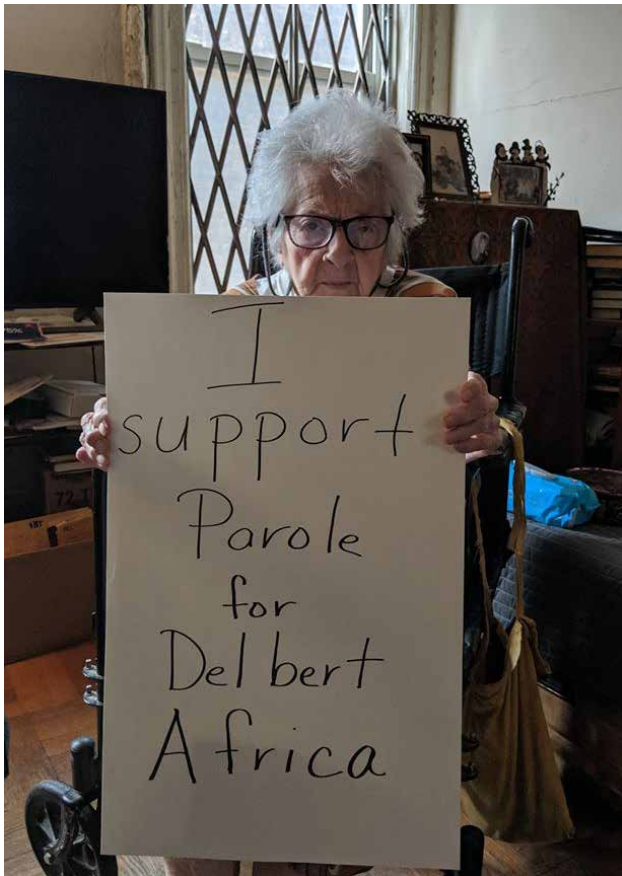 I
support
Parole
for
Delbert
Africa